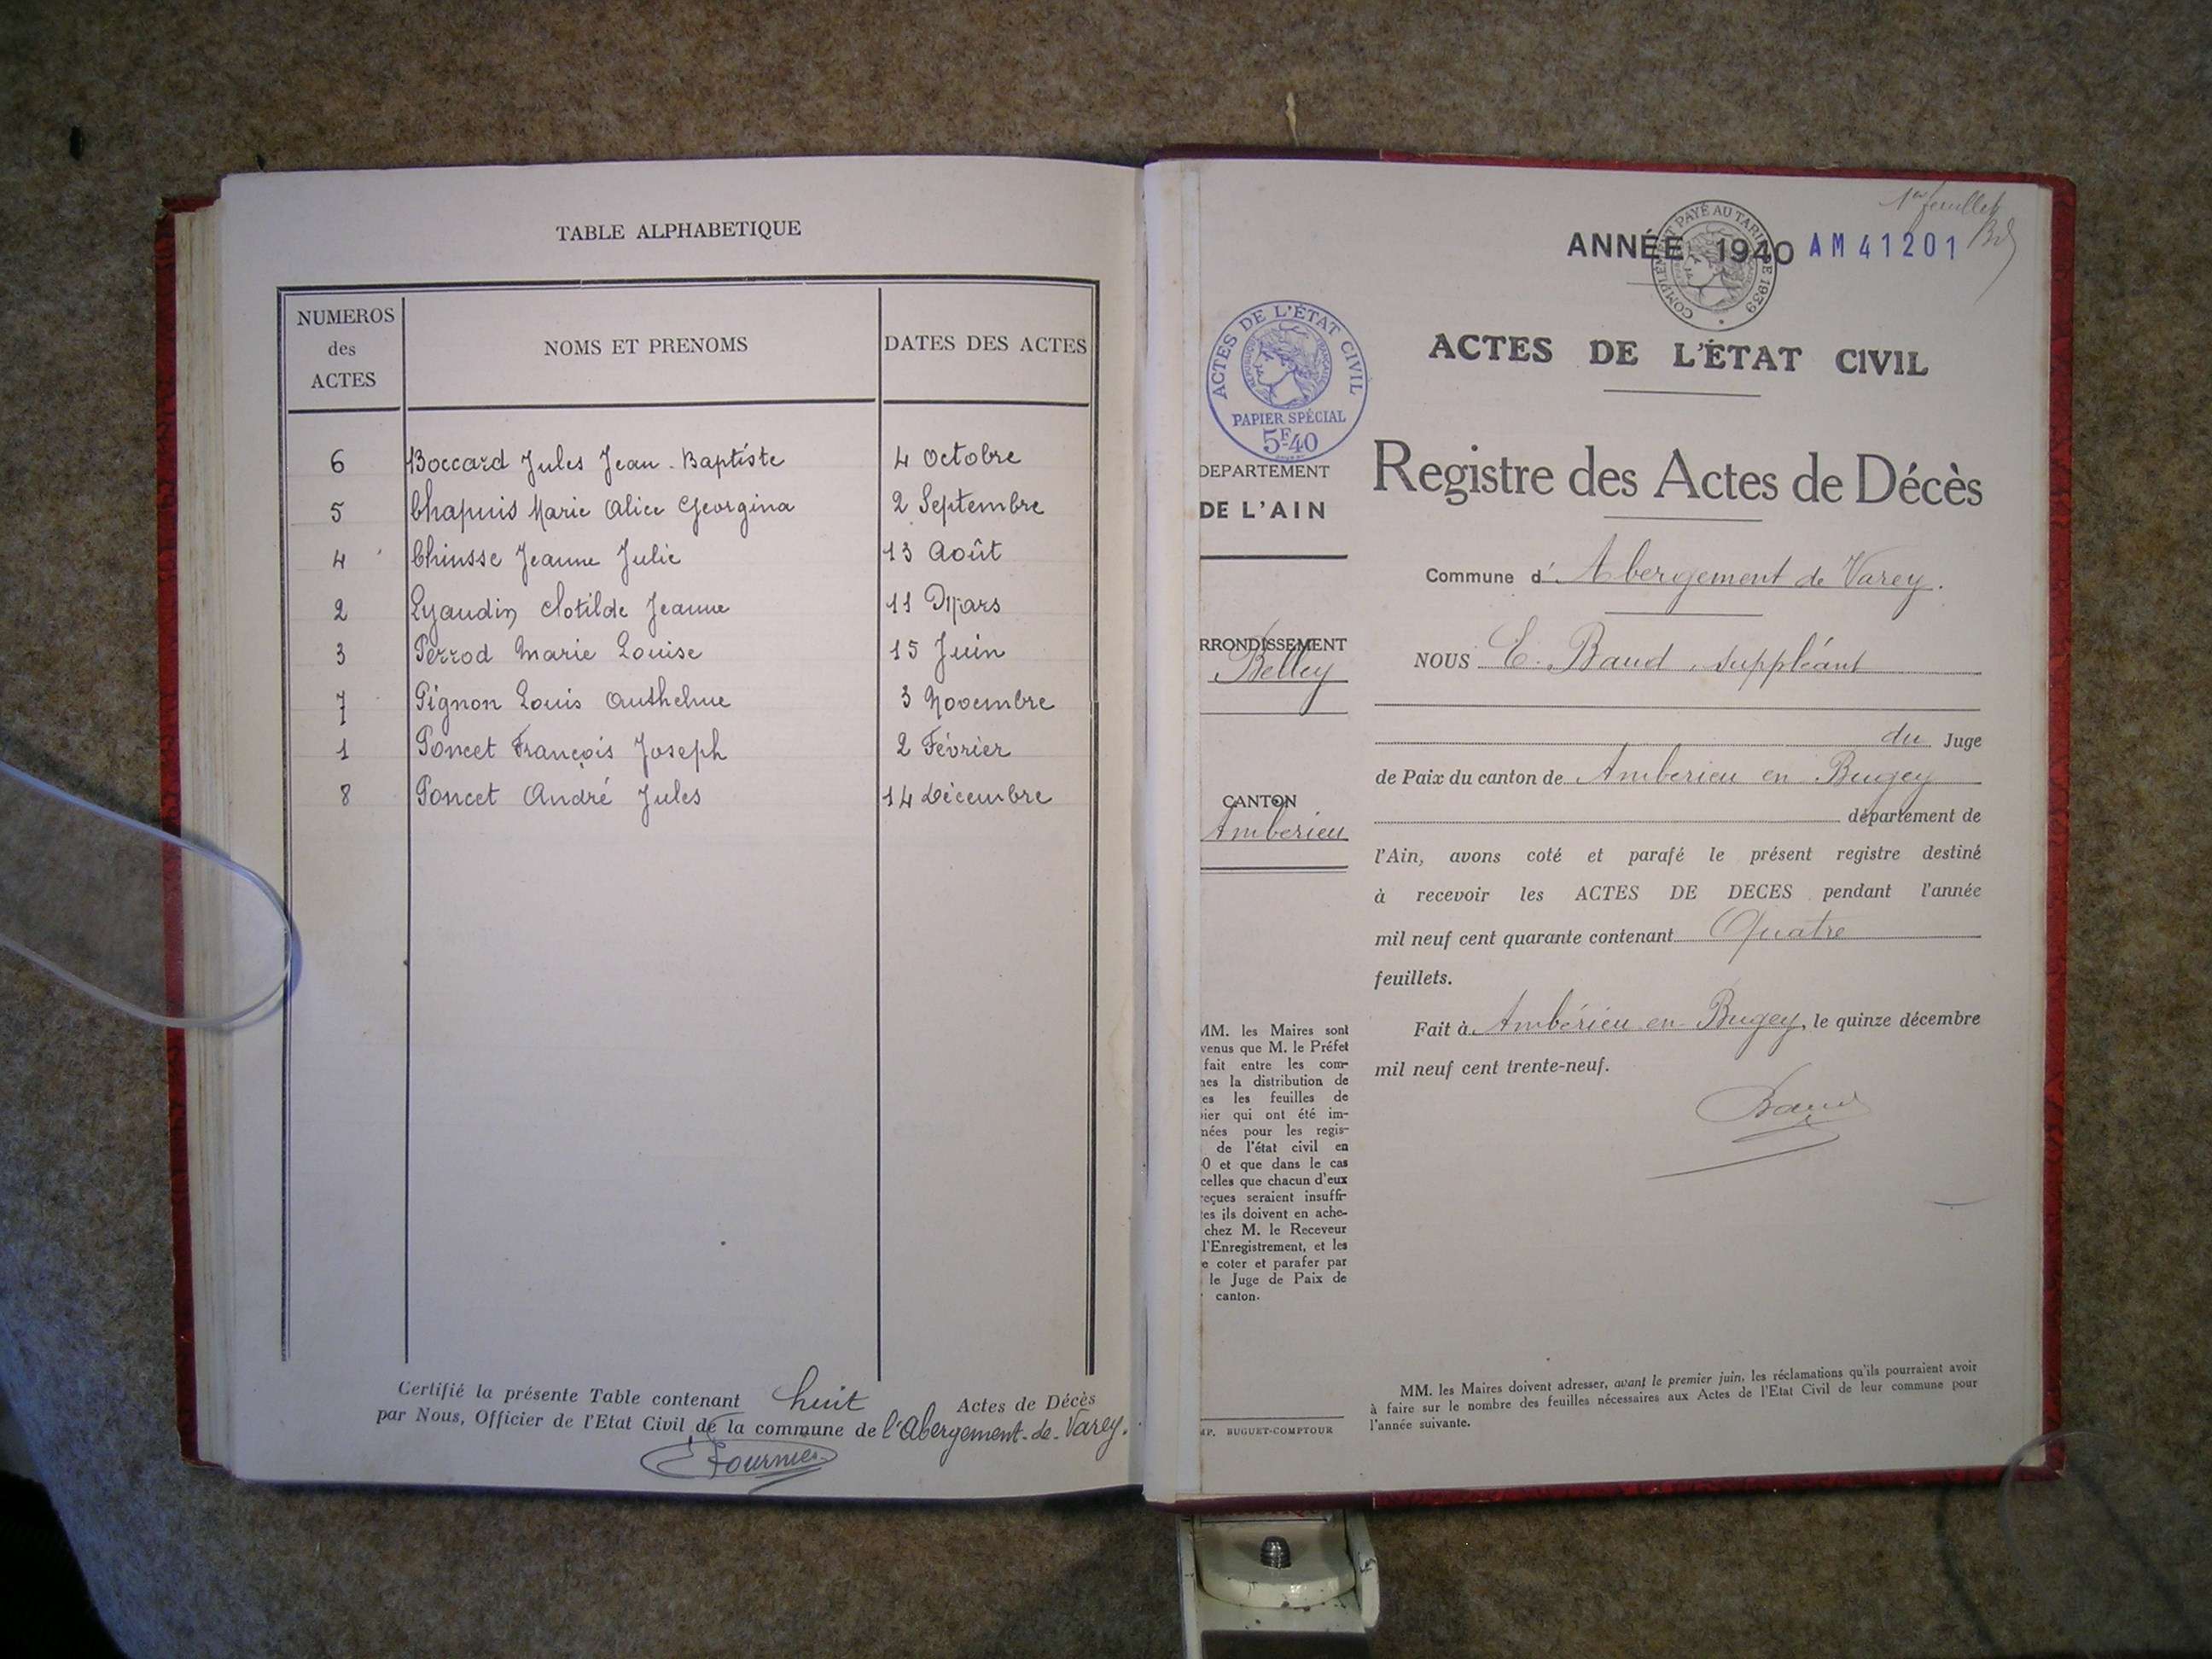 TABLE ALPHABETIQUE
NUMEROS des ACTES
NOMS ET PRENOMS
DATES DES ACTES
6 Boccard Jules Jean-Baptiste 4 Octobre
5 Chapuis Marie Alice Georgina 2 Septembre
4 Chinsse Jeanne Julie 13 Août
2 Lyaudin Clotilde Jeanne 11 Mars
3 Perrod Marie Louise 15 Juin
7 Pignon Louis Anthelme 3 Novembre
1 Poncet François Joseph 2 Février
8 Poncet André Jules 14 Décembre
Certifié la présente Table contenant huit Actes de Décès
par Nous, Officier de l'Etat Civil de la commune de l'Abergement-de-Varey.
Fournier
1er feuillet
ANNÉE 1940 AM 41201
COMPLÉMENT PAYÉ AU TARIF DE 1939
ACTES DE L'ÉTAT CIVIL
RÉPUBLIQUE FRANÇAISE
PAPIER SPÉCIAL
5F40
DEPARTEMENT
DE L'AIN
RRONDISSEMENT
Belley
CANTON
Amberieu
MM. les Maires sont
venus que M. le Préfet
fait entre les com-
nes la distribution de
es les feuilles de
ier qui ont été im-
nées pour les regis-
de l'état civil en
0 et que dans le cas
celles que chacun d'eux
reçues seraient insuffi-
tes ils doivent en ache-
chez M. le Receveur
l'Enregistrement, et les
e coter et parafer par
le Juge de Paix de
canton.
MP. BUGUET-COMPTOUR
ACTES DE L'ÉTAT CIVIL
Registre des Actes de Décès
Commune d'Abergement de Varey.
NOUS E. Baud, suppléant
du Juge
de Paix du canton de Amberieu en Bugey
département de
l'Ain, avons coté et parafé le présent registre destiné
à recevoir les ACTES DE DECES pendant l'année
mil neuf cent quarante contenant Quatre
feuillets.
Fait à Ambérieu en Bugey, le quinze décembre
mil neuf cent trente-neuf.
Baud
MM. les Maires doivent adresser, avant le premier juin, les réclamations qu'ils pourraient avoir
à faire sur le nombre des feuilles nécessaires aux Actes de l'Etat Civil de leur commune pour
l'année suivante.